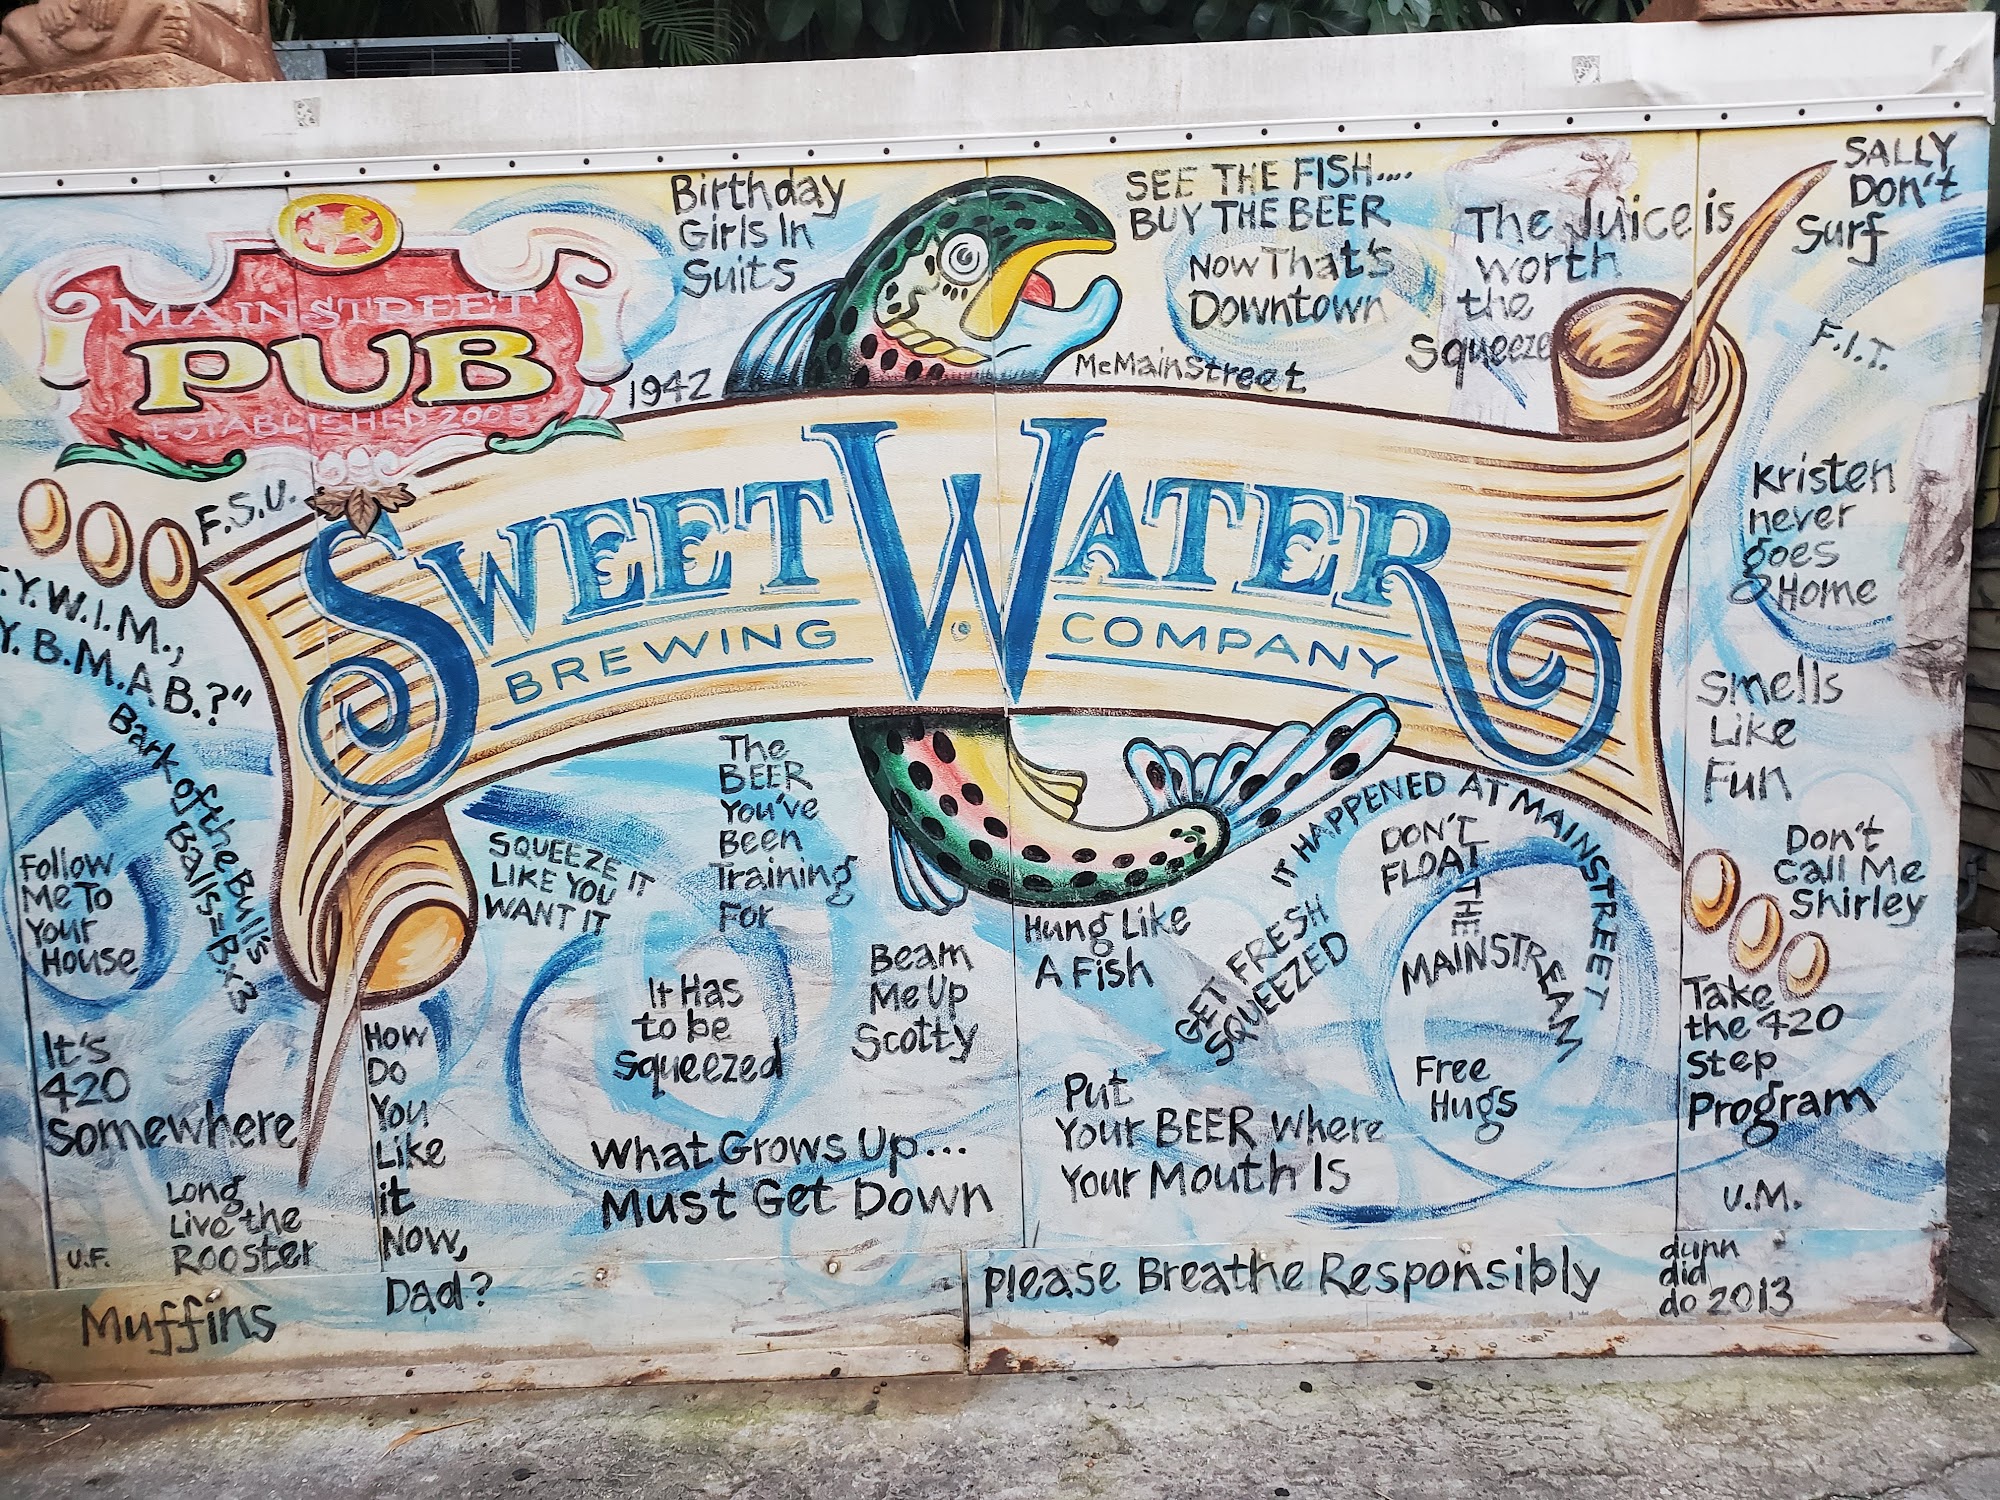 MAINSTREET
PUB
ESTABLISHED 2005
Birthday
Girls In
Suits
1942
SEE THE FISH....
BUY THE BEER
NOW That's
Downtown
McMainStreet
The Juice is
worth
the
Squeeze
SALLY
Don't
Surf
F.I.T.
F.S.U.
SWEETWATER
BREWING COMPANY
Kristen
never
goes
Home
.Y.W.I.M.,
Y.B.M.A.B.?"
Bark of the Bull's
Balls=B.x3
Smells
Like
Fun
Follow
Me To
Your
House
SQUEEZE IT
LIKE YOU
WANT IT
The
BEER
You've
Been
Training
For
Hung Like
A Fish
IT HAPPENED AT MAINSTREET
GET FRESH
SQUEEZED
DON'T
FLOAT
THE
MAINSTREAM
Don't
Call Me
Shirley
It Has
to be
Squeezed
Beam
Me Up
Scotty
Take
the 420
Step
Program
It's
420
Somewhere
How
Do
You
Like
it
Now,
Dad?
Free
Hugs
Put
Your BEER Where
Your Mouth Is
What Grows Up...
Must Get Down
Long
Live the
ROOSTER
U.F.
U.M.
Muffins
Please Breathe Responsibly
dunn
did
do 2013